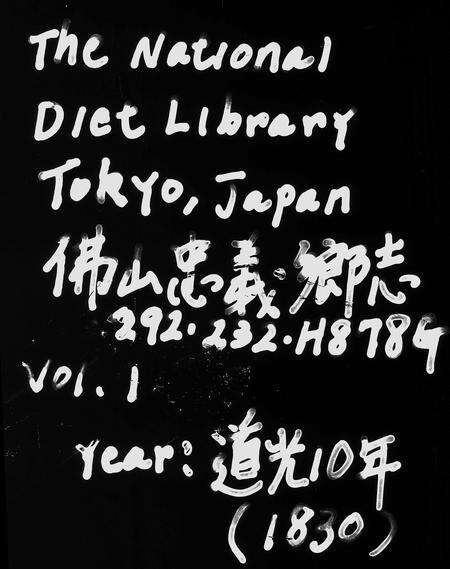 The National
Diet Library
Tokyo, Japan
佛山忠義鄉志
292.232.H878G
Vol. 1
Year: 道光10年
(1830)